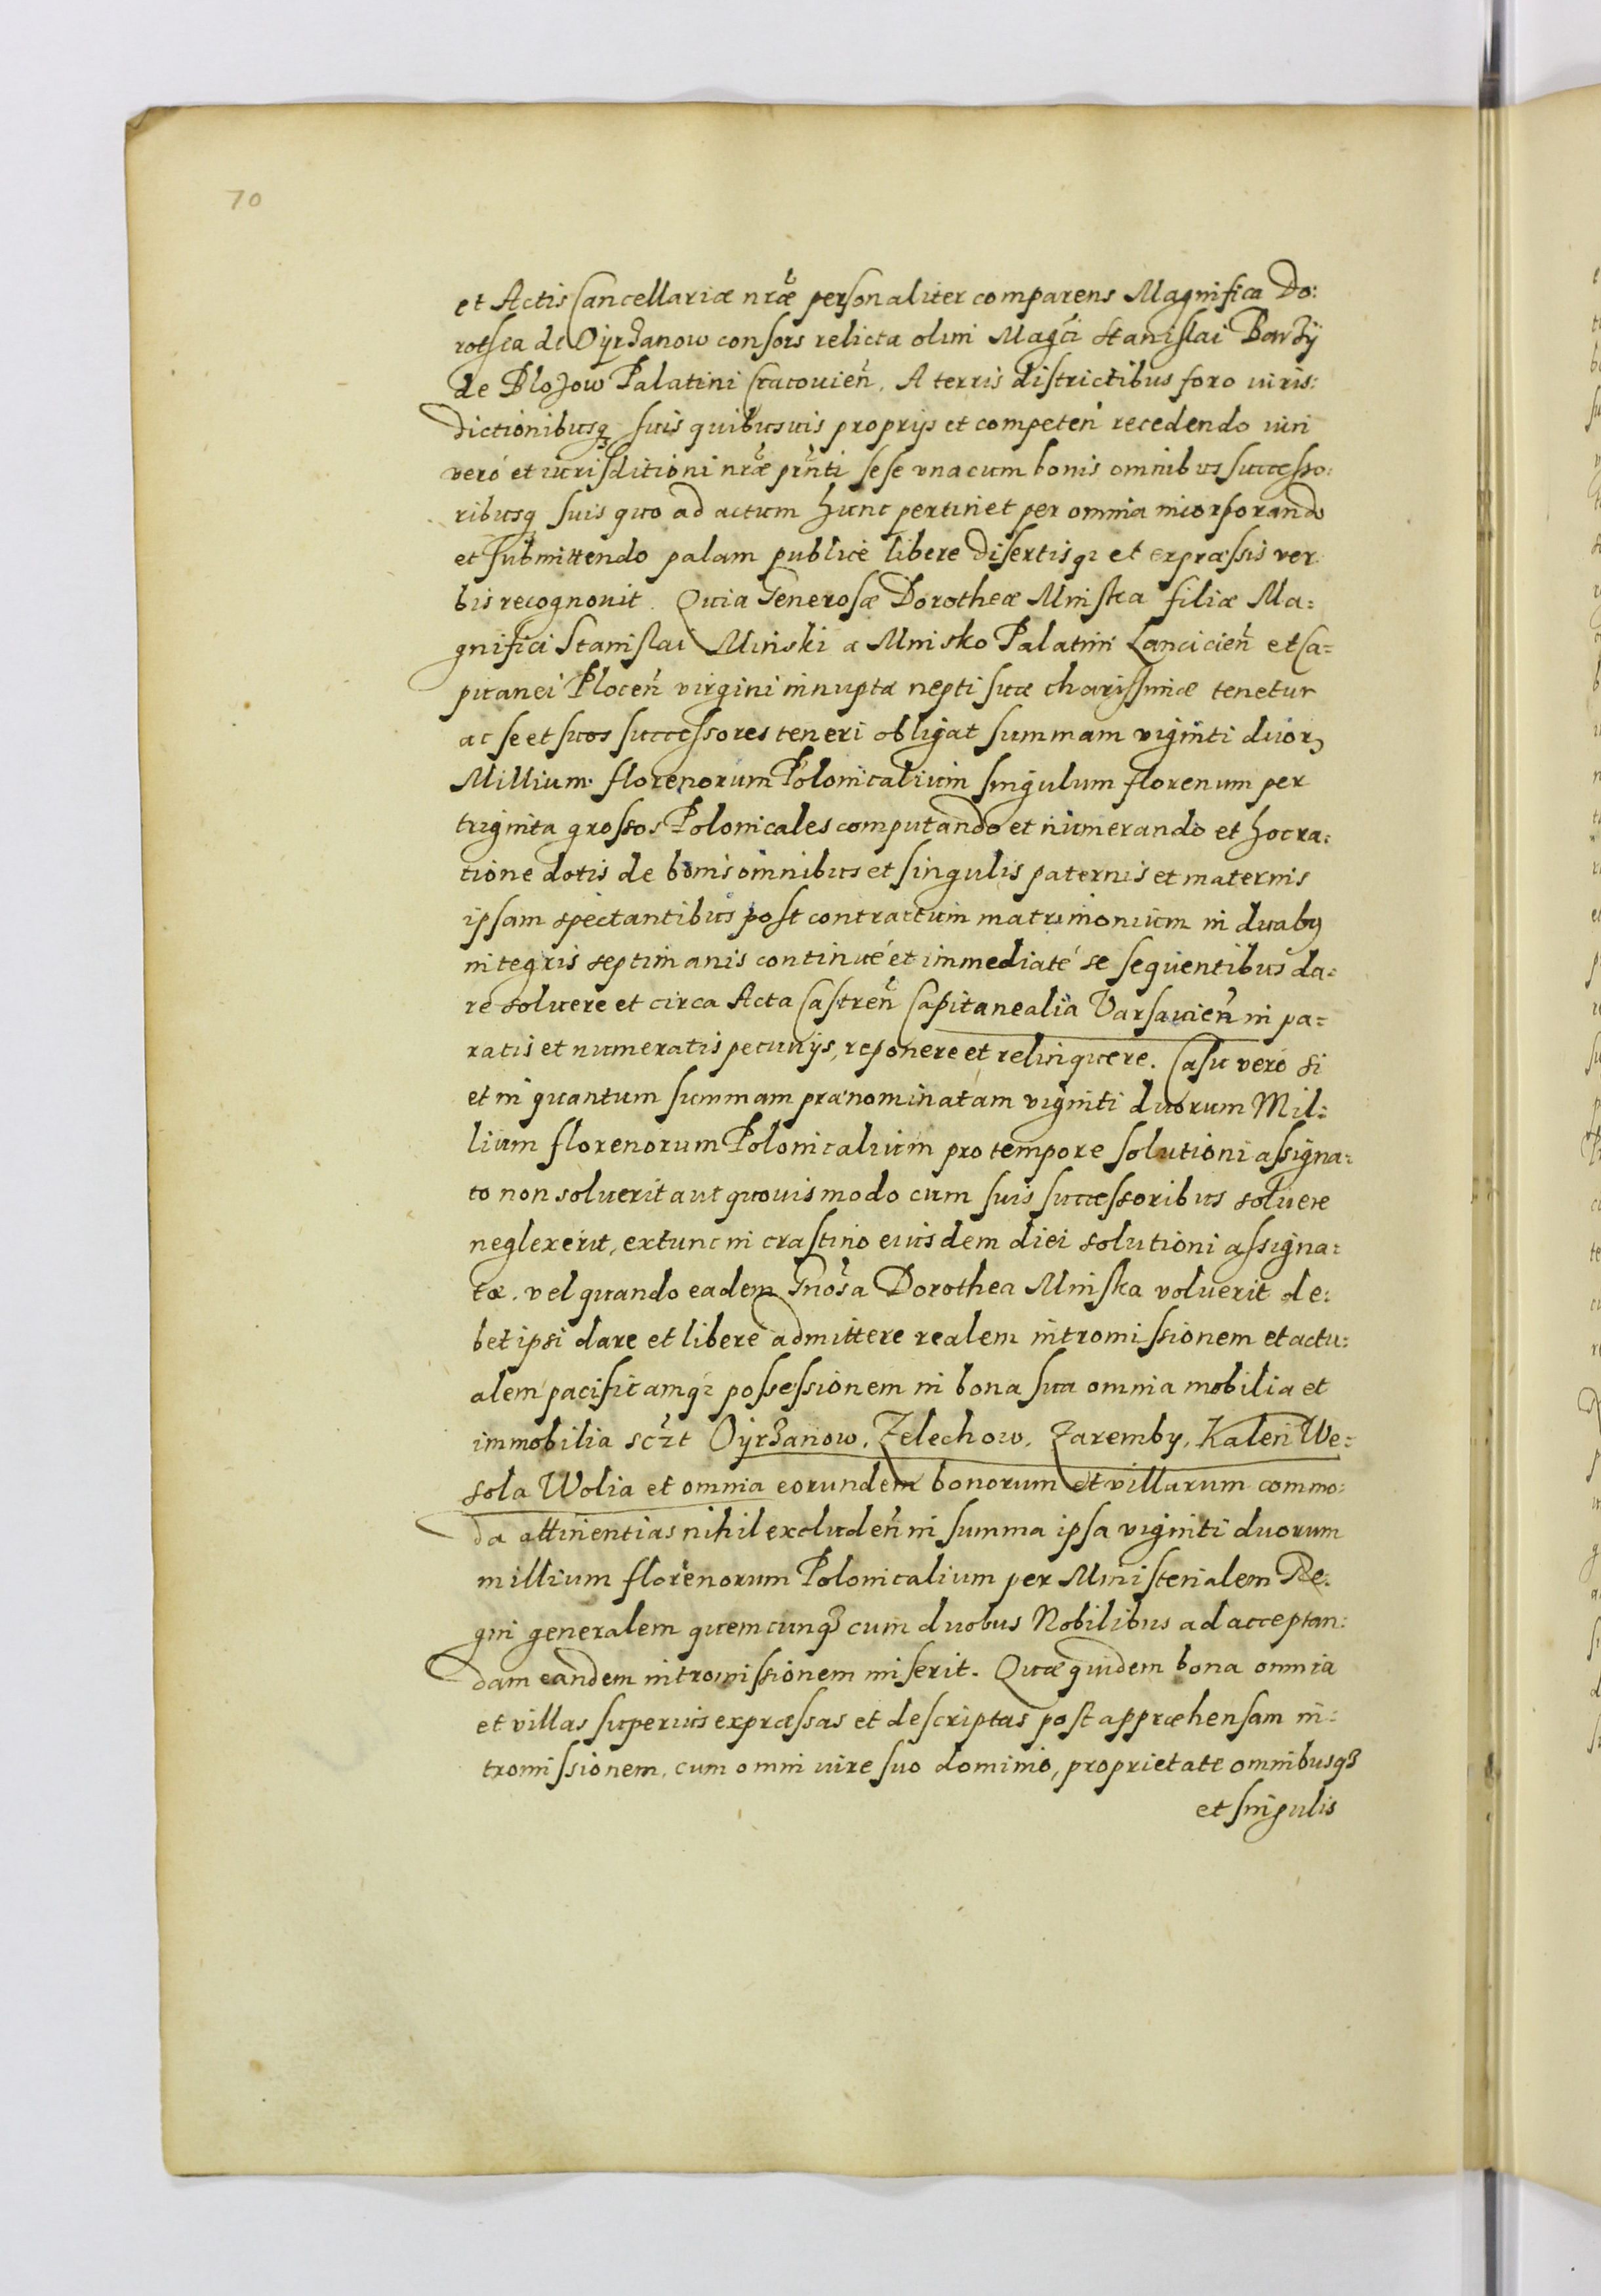 70
et Actis Cancellariæ nrãe personaliter comparens Magnifica Do:
rothea de Oyrzanow consors relicta olim Magci Stanislai Barzÿ
de Blozow Palatini Cracouien. A terris districtibus foro iuris:
dictionibusq suis quibusuis proprijs et competen recedendo iuri
vero et iurisditioni nræ prnti sese vna cum bonis omnibus successo:
ribusq suis quo ad actum hunc pertinet per omnia incorporando
et submittendo palam publicè libere disertisq et expræssis ver
bis recognouit. Quia Generosæ Dorotheæ Mniska filiæ Ma:
gnifici Stanislai Minski a Mnisko Palatini Lancicien et Ca=
pitanei Plocen virgini innuptæ nepti suæ charissimæ tenetur
ac se et suos successores teneri obligat summam viginti duor
Millium florenorum Polonicalium singulum florenum per
triginta grossos Polonicales computando et numerando et hoc ra:
tione dotis de bonis omnibus et singulis paternis et maternis
ipsam spectantibus post contractum matrimonium in duabq
integris septimanis continué et immediaté se sequentibus da:
re soluere et circa Acta Castren Capitanealia Varsauien in pa=
ratis et numeratis pecunijs, reponere et relinquere. Casu vero si
et in quantum summam prænominatam viginti duorum Mil:
lium florenorum Polonicalium pro tempore solutioni assigna:
to non soluerit aut quouis modo cum suis successoribus soluere
neglexerit, extunc in crastino eiusdem diei solutioni assigna:
tæ. vel quando eadem Gnosa Dorothea Mniska voluerit de:
bet ipsi dare et liberè admittere realem intromissionem et actu:
alem pacificamq possessionem in bona sua omnia mobilia et
immobilia sczt Oyrzanow, Zelechow, Zaremby, Kalen We:
sola Wolia et omnia eorundem bonorum et villarum commo:
da attinentias nihil excluden in summa ipsa viginti duorum
millium florenorum Polonicalium per Ministerialem Re:
gni generalem quemcunq cum duobus Nobilibus ad acceptan:
dam eandem intromissionem miserit. Quæ quidem bona omnia
et villas superius expræssas et descriptas post appræhensam in:
tromissionem, cum omni iure suo dominio, proprietate omnibusq
et singulis